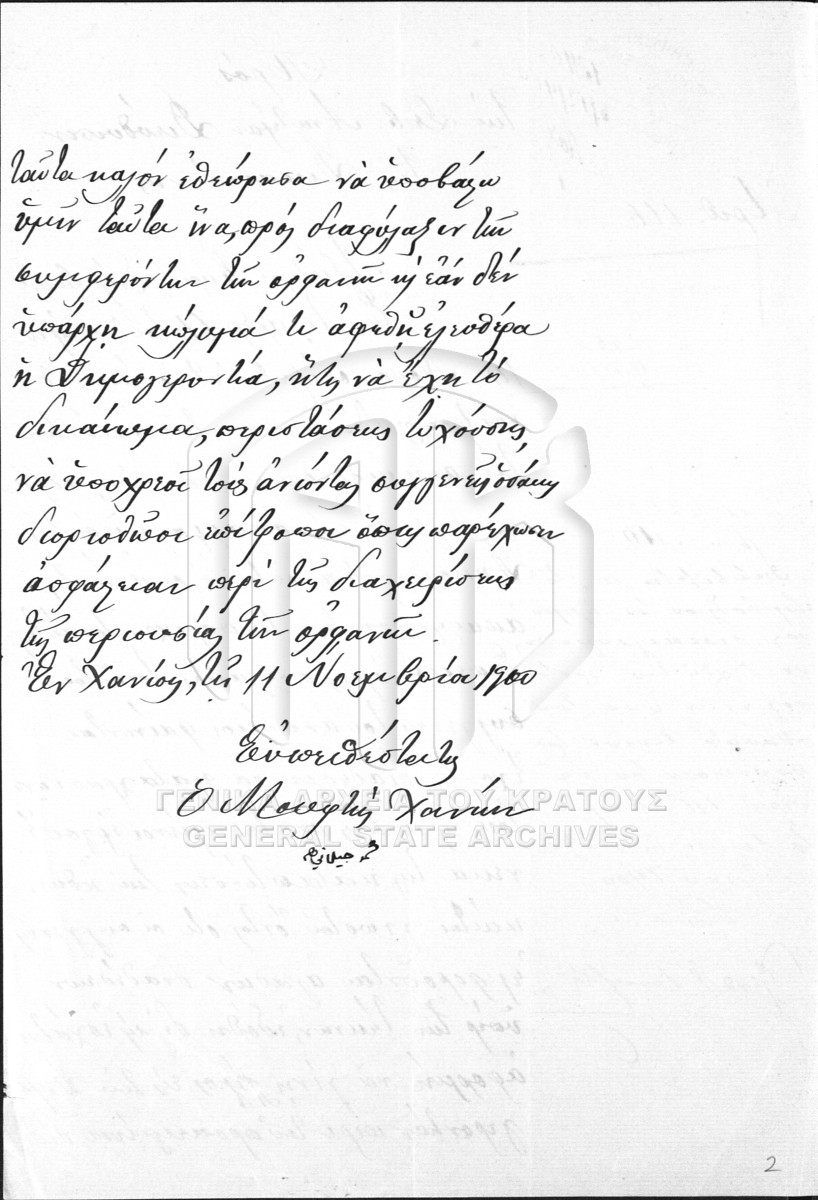 ταῦτα καλόν ἐθεώρησα νὰ ὑποβάλω
ὑμῖν ταῦτα ἵνα, πρός διαφύλαξιν τῶν
συμφερόντων τῶν ὀρφανῶν κ ἐὰν δέν
ὑπάρχῃ κώλυμά τι ἀφεθῇ ἐλευθέρα
ἡ Δημογεροντία, ἥτις νὰ ἔχῃ τό
δικαίωμα, περιστάσεως τυχούσης,
νὰ ὑποχρεοῖ τούς ἀνιόντας συγγενεῖς ὁσάκις
διορισθῶσι ἐπίτροποι ὅπως παρέχωσιν
ἀσφάλειαν περί τῆς διαχειρίσεως
τῆς περιουσίας τῶν ὀρφανῶν.
Ἐν Χανίοις, τῇ 11 Νοεμβρίου 1900
Εὐπειθέστατος
Ὁ Μουφτής Χανίων
محمد جيلاني
ΓΕΝΙΚΑ ΑΡΧΕΙΑ ΤΟΥ ΚΡΑΤΟΥΣ
GENERAL STATE ARCHIVES
2